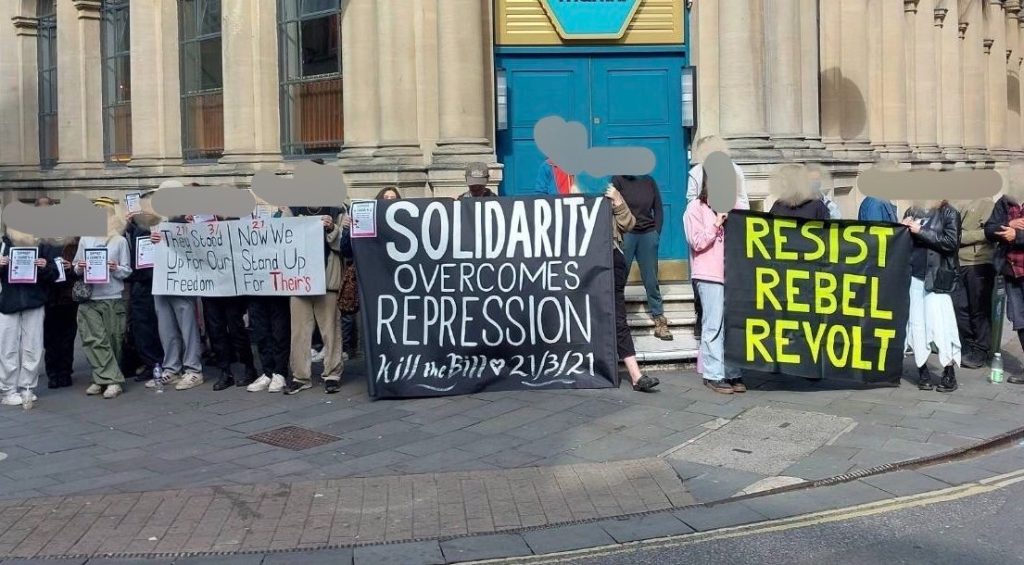 21 / 3 / 21
They Stood
Up For Our
Freedom
Now We
Stand Up
For Their's
SOLIDARITY
OVERCOMES
REPRESSION
kill the Bill ♥ 21/3/21
RESIST
REBEL
REVOLT